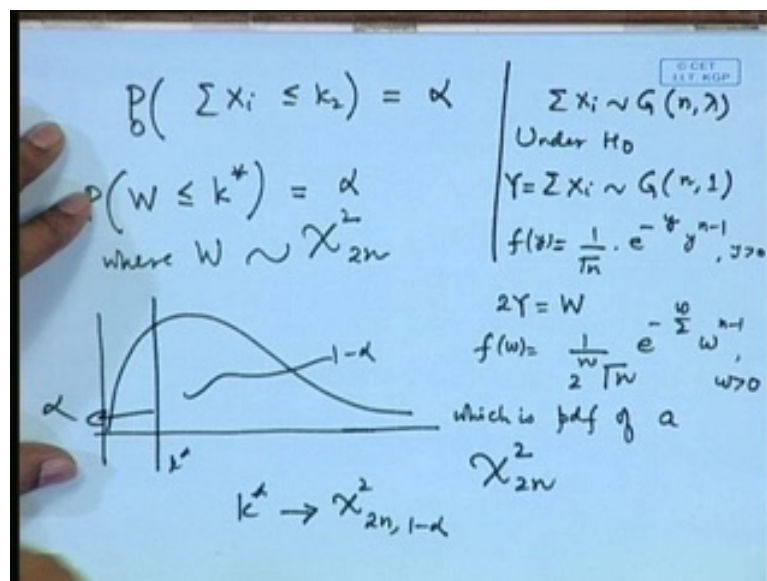 P₀( Σ Xᵢ ≤ k₂) = α
P(W ≤ k*) = α
where W ~ χ²₂ₙ
1-α
α
k*
k* → χ²₂ₙ, ₁₋α
© CET
I.I.T. KGP
Σ Xᵢ ~ G(n, λ)
Under H₀
Y = Σ Xᵢ ~ G(n, 1)
f(y) = 1/Γn · e^{-y} y^{n-1}, y>0
2Y = W
f(w) = 1/(2ⁿ Γn) e^{-w/2} w^{n-1}, w>0
which is pdf of a
χ²₂ₙ